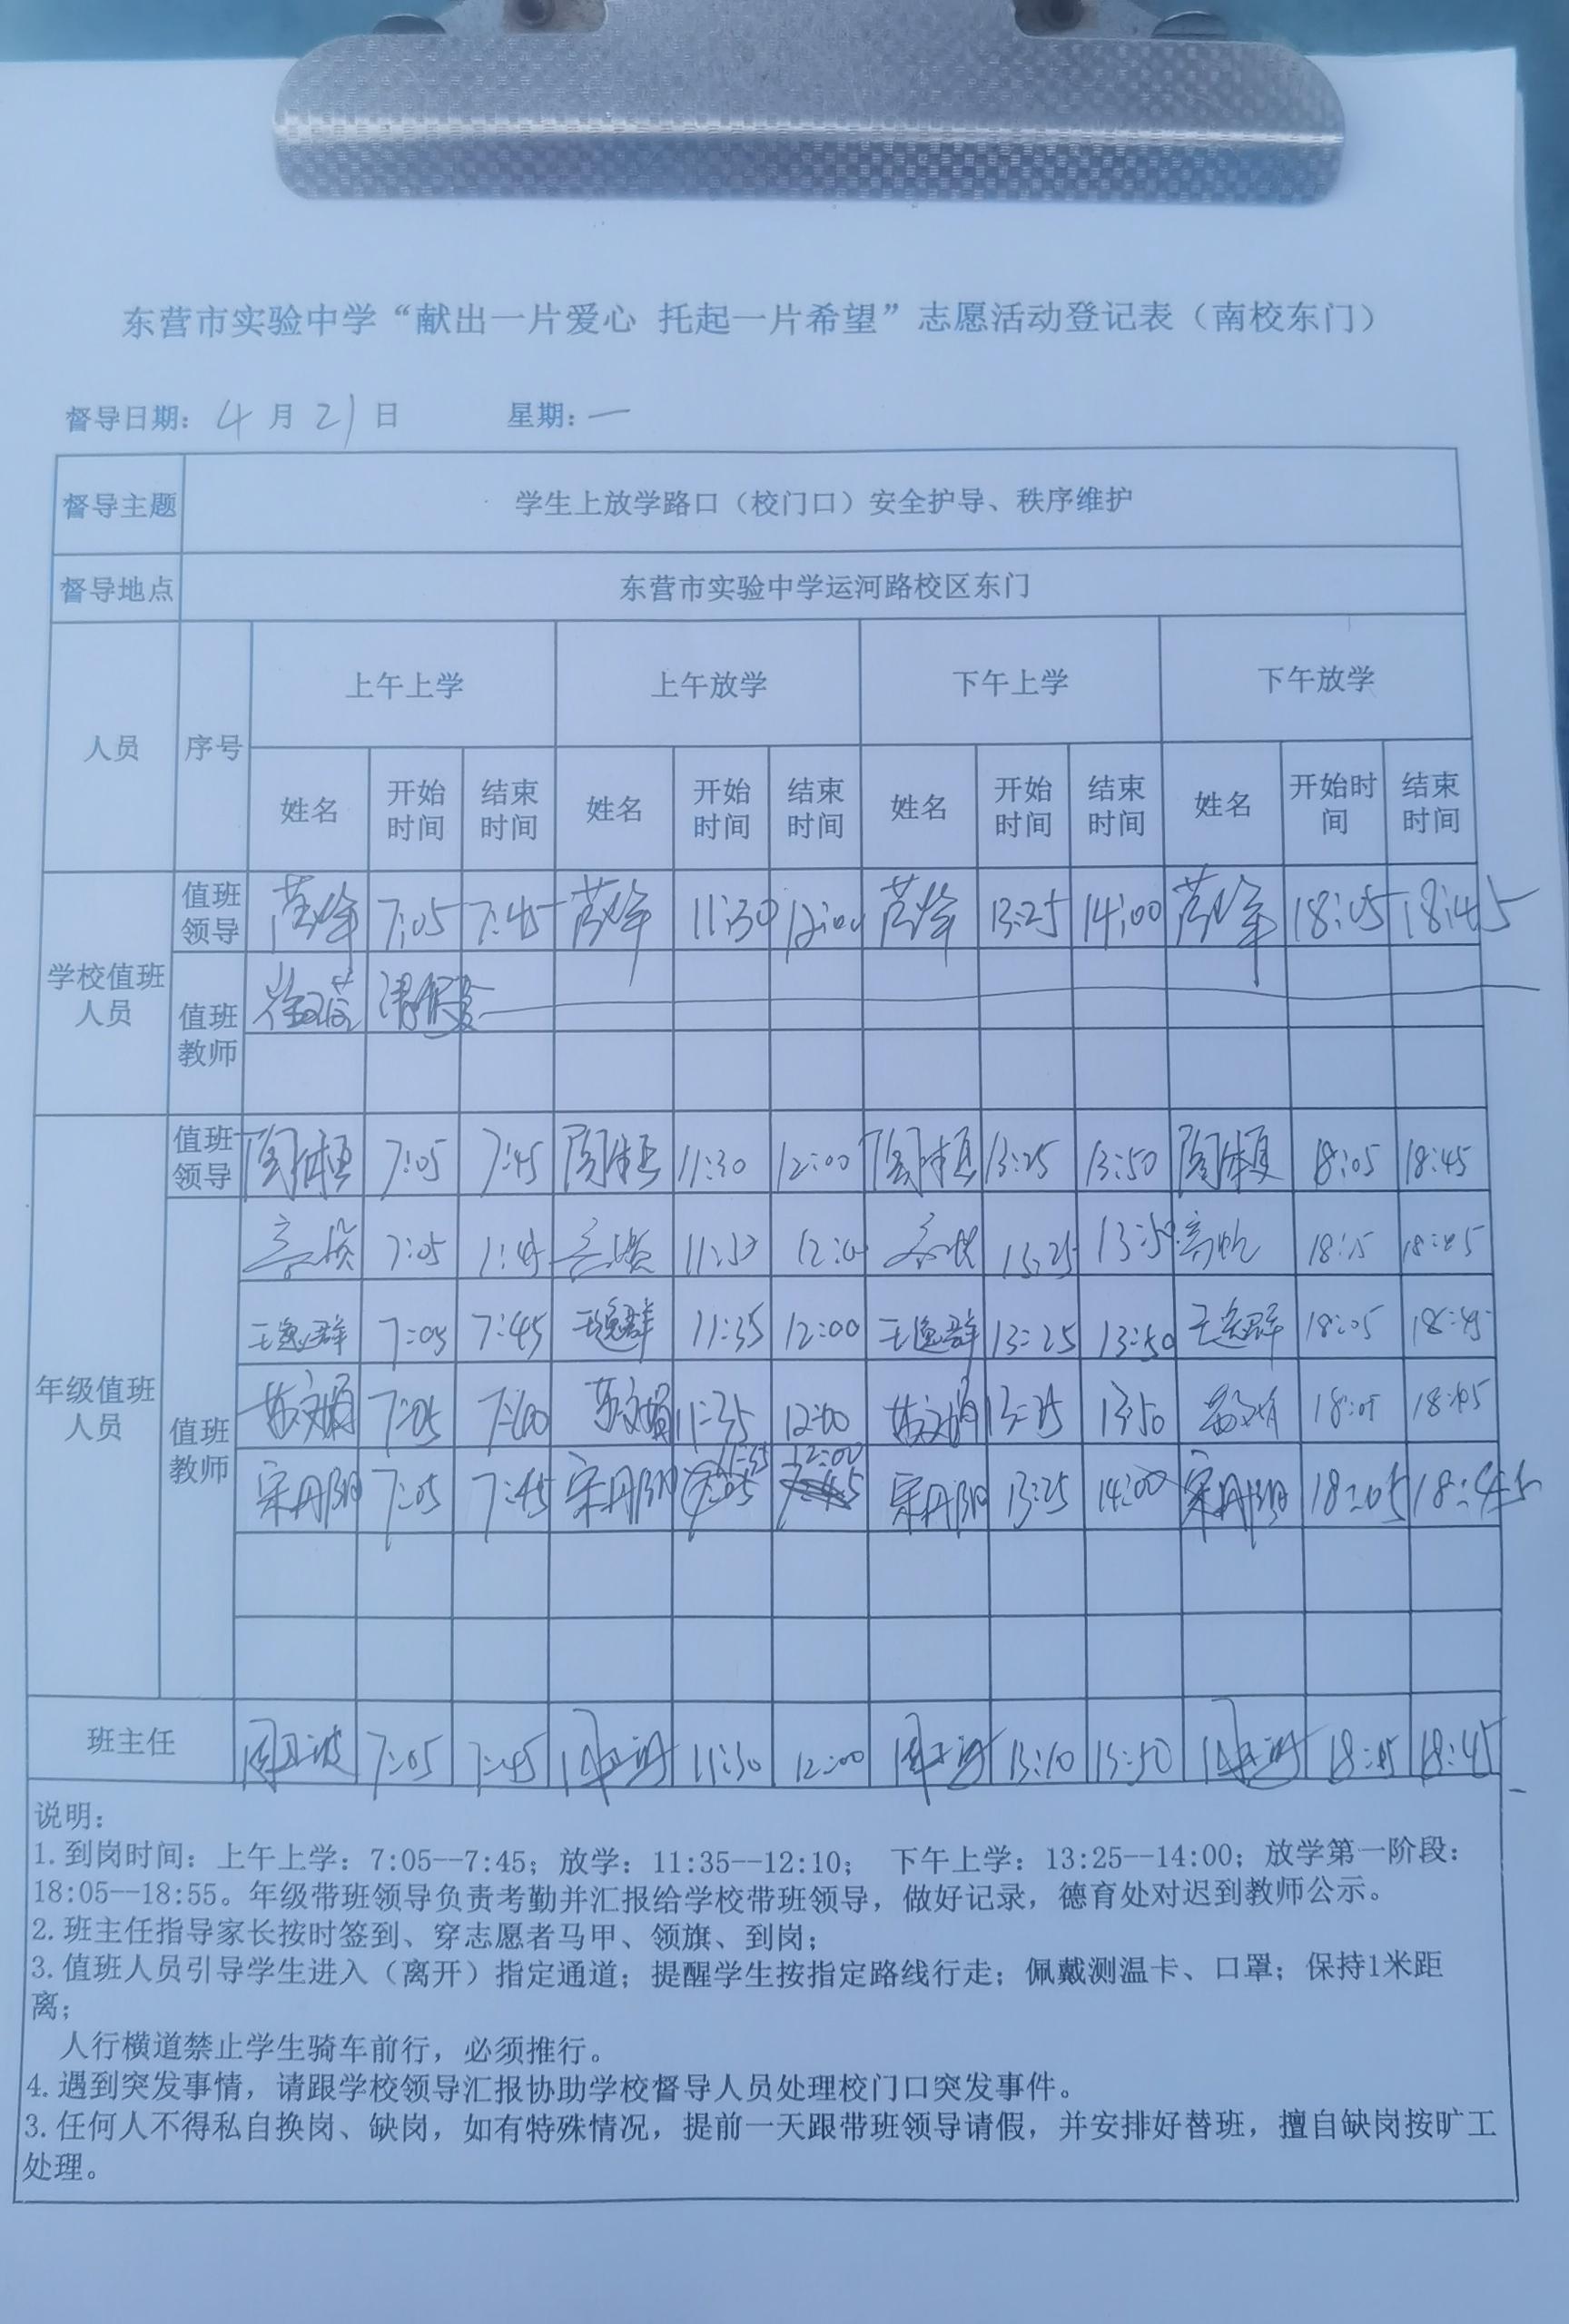 东营市实验中学“献出一片爱心 托起一片希望”志愿活动登记表（南校东门）
督导日期：4月21日 星期：一
督导主题 学生上放学路口（校门口）安全护导、秩序维护
督导地点 东营市实验中学运河路校区东门
人员 序号 上午上学 上午放学 下午上学 下午放学
姓名 开始时间 结束时间 姓名 开始时间 结束时间 姓名 开始时间 结束时间 姓名 开始时间 结束时间
学校值班人员
值班领导 7:05 7:45 11:30 12:00 13:25 14:00 18:05 18:45
值班教师 请假
年级值班人员
值班领导 7:05 7:45 11:30 12:00 13:25 13:50 18:05 18:45
值班教师
7:05 13:25 13:50
王逸群 7:05 7:45 王逸群 11:35 12:00 王逸群 13:25 13:50 王逸群 18:05 18:45
7:05 11:35 12:00 13:25 13:50 18:05 18:45
宋丹阳 7:05 7:45 宋丹阳 11:35 12:00 宋丹阳 13:25 14:00 宋丹阳 18:05 18:45
班主任 7:05 7:45 11:30 12:00 13:10 13:50 18:05 18:45
说明：
1.到岗时间：上午上学：7:05--7:45；放学：11:35--12:10； 下午上学：13:25--14:00；放学第一阶段：
18:05--18:55。年级带班领导负责考勤并汇报给学校带班领导，做好记录，德育处对迟到教师公示。
2.班主任指导家长按时签到、穿志愿者马甲、领旗、到岗；
3.值班人员引导学生进入（离开）指定通道；提醒学生按指定路线行走；佩戴测温卡、口罩；保持1米距
离；
人行横道禁止学生骑车前行，必须推行。
4.遇到突发事情，请跟学校领导汇报协助学校督导人员处理校门口突发事件。
3.任何人不得私自换岗、缺岗，如有特殊情况，提前一天跟带班领导请假，并安排好替班，擅自缺岗按旷工
处理。